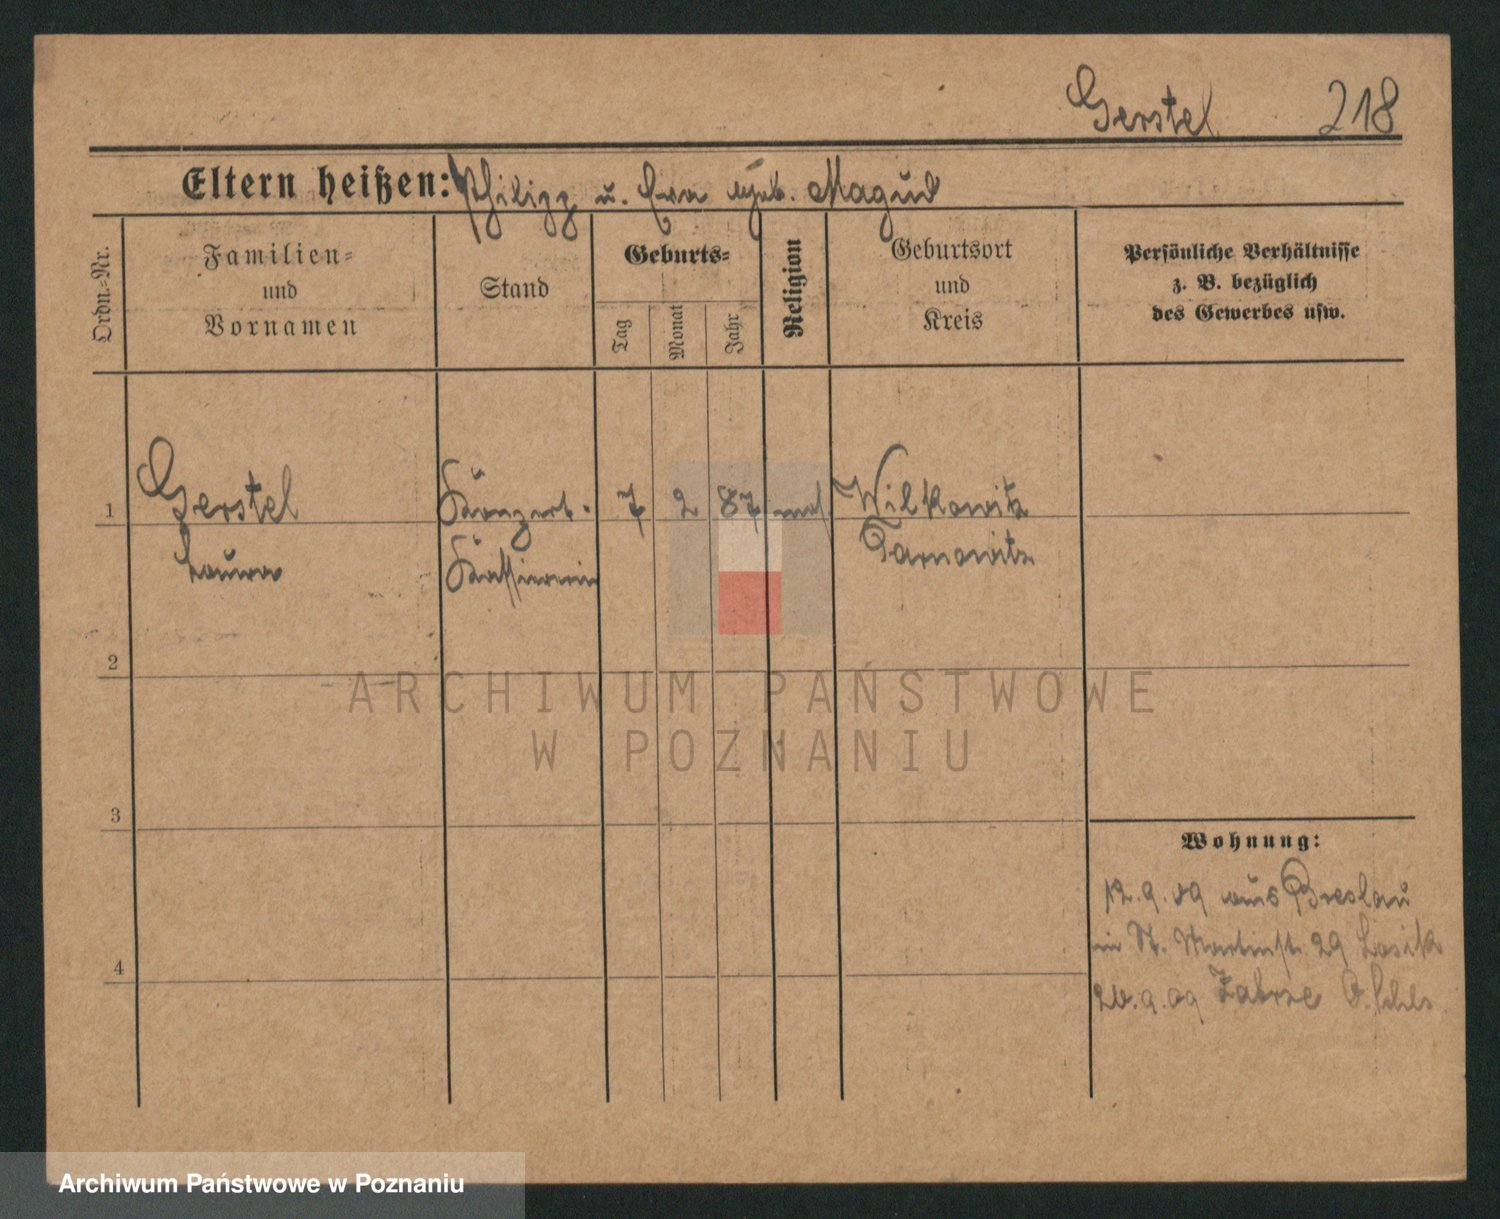 Gerstel 218
Eltern heißen: Philipp u. Eva geb. Magud
Ordn.-Nr.
Familien-
und
Vornamen
Stand
Geburts-
Tag
Monat
Jahr
Religion
Geburtsort
und
Kreis
Persönliche Verhältnisse
z. B. bezüglich
des Gewerbes usw.
1 Gerstel Konzert- 7 2 87 mos. Wilkowitz
Laura Kassiererin Tarnowitz
2
3
4
Wohnung:
12.9.09 aus Breslau
in St. Martinstr. 29
26.9.09 Zabrze O. Schles
ARCHIWUM PAŃSTWOWE
W POZNANIU
Archiwum Państwowe w Poznaniu